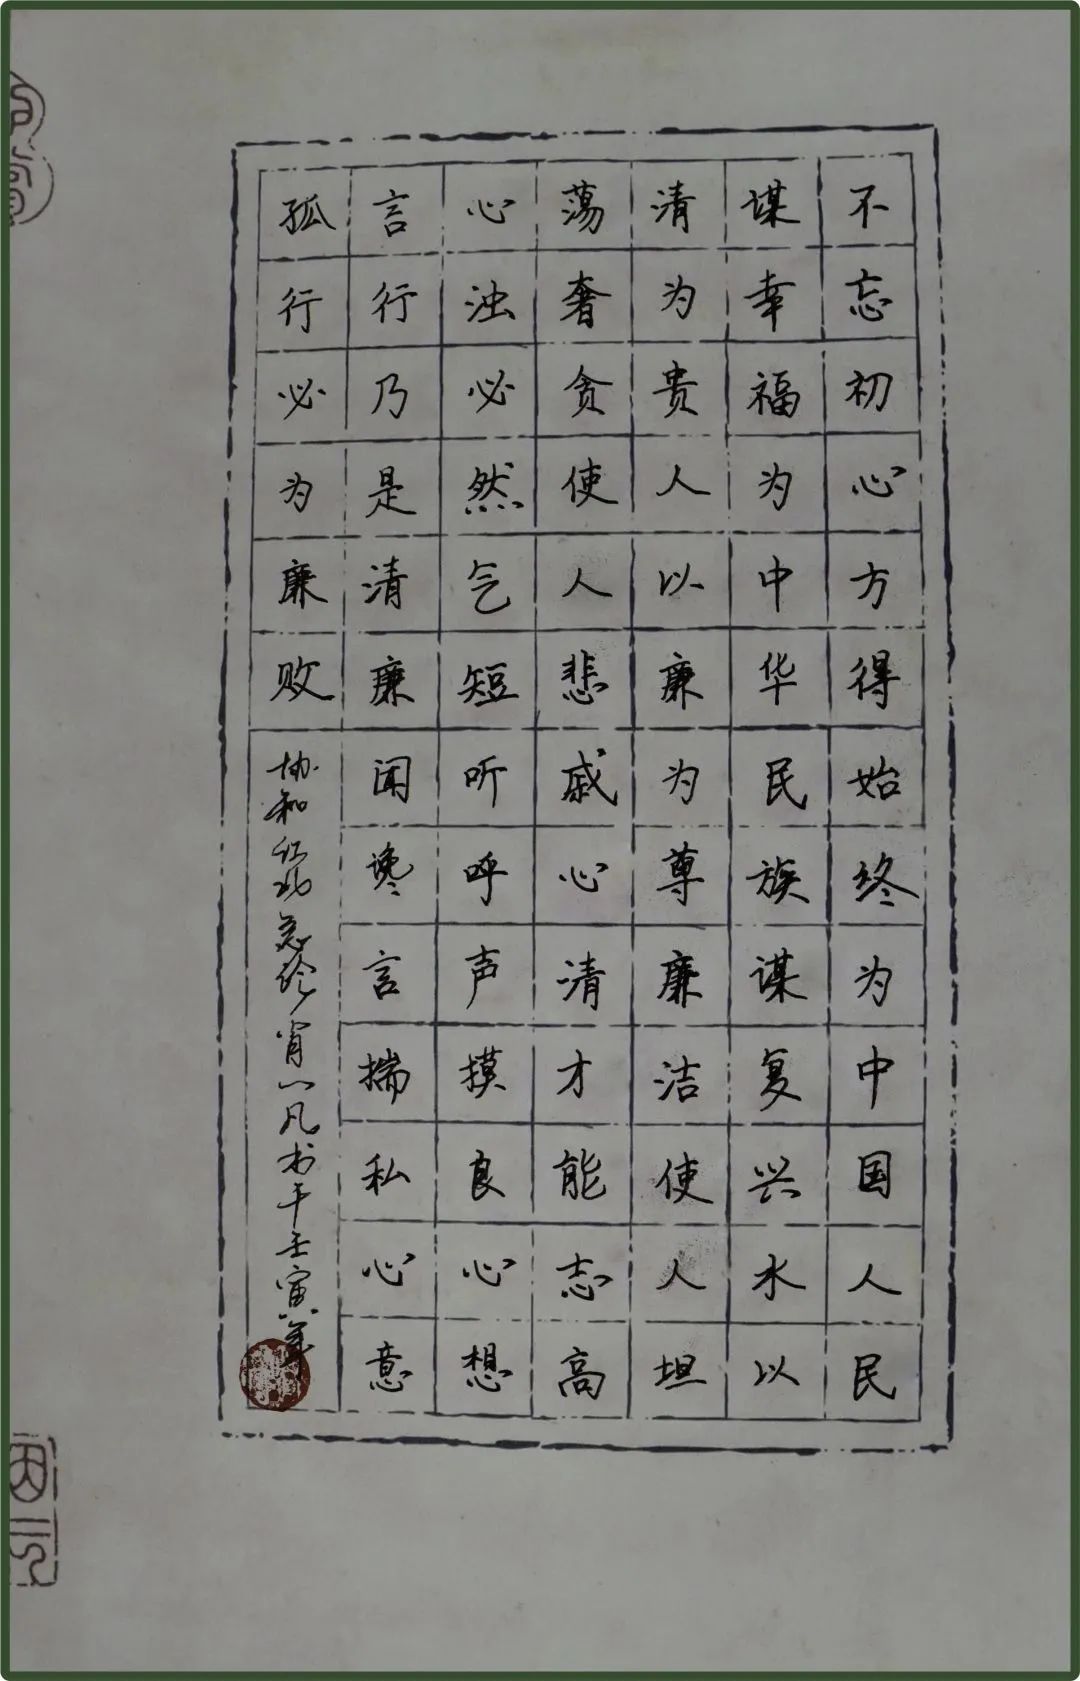 不忘初心方得始终为中国人民
谋幸福为中华民族谋复兴水以
清为贵人以廉为尊廉洁使人坦
荡奢贪使人悲戚心清才能志高
心浊必然气短听呼声摸良心想
言行乃是清廉闻谗言揣私心意
孤行必为廉败
协和红北急诊肖一凡书于壬寅年